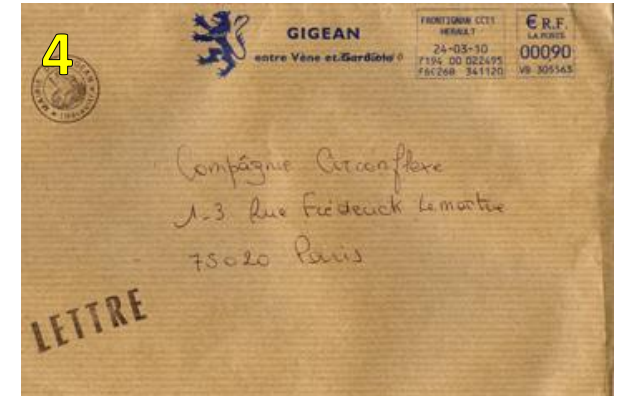 4
GIGEAN
entre Vène et Gardiole
FRONTIGNAN CCT1
HERAULT
24-03-10
7194 00 022495
F6C268 341120
€ R.F.
LA POSTE
00090
VB 305563
MAIRIE
Compâgnie Circonflexe
1-3 Rue Frédérick Lemaître
75020 Paris
LETTRE